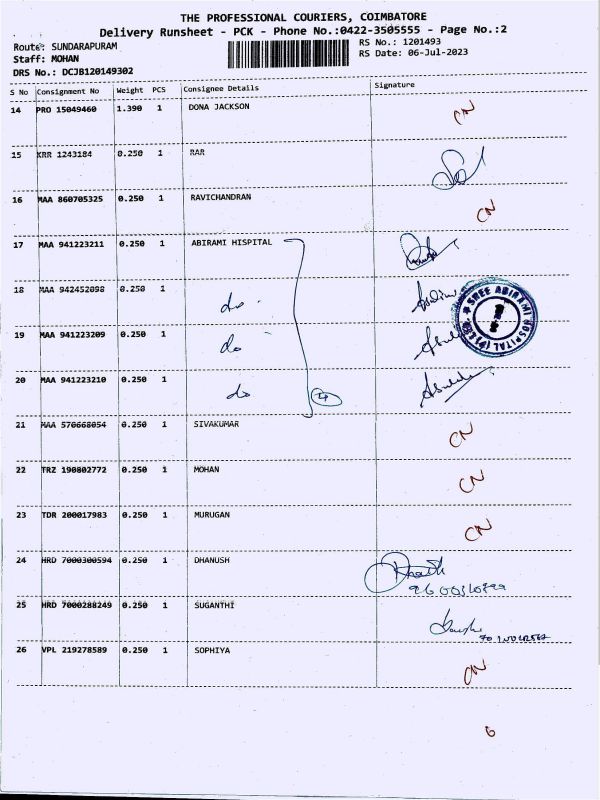 THE PROFESSIONAL COURIERS, COIMBATORE
Delivery Runsheet - PCK - Phone No.:0422-3505555 - Page No.:2
Route: SUNDARAPURAM
RS No.: 1201493
Staff: MOHAN
RS Date: 06-Jul-2023
DRS No.: DCJB120149302
S No Consignment No Weight PCS Consignee Details Signature
14 PRO 15049460 1.390 1 DONA JACKSON CN
15 KRR 1243184 0.250 1 RAR
16 MAA 860705325 0.250 1 RAVICHANDRAN CN
17 MAA 941223211 0.250 1 ABIRAMI HISPITAL
18 MAA 942452098 0.250 1 do
19 MAA 941223209 0.250 1 do
20 MAA 941223210 0.250 1 do 4
SREE ABIRAMI HOSPITAL
21 MAA 570668054 0.250 1 SIVAKUMAR CN
22 TRZ 190802772 0.250 1 MOHAN CN
23 TDR 200017983 0.250 1 MURUGAN CN
24 HRD 7000300594 0.250 1 DHANUSH
25 HRD 7000288249 0.250 1 SUGANTHI
26 VPL 219278589 0.250 1 SOPHIYA CN
6